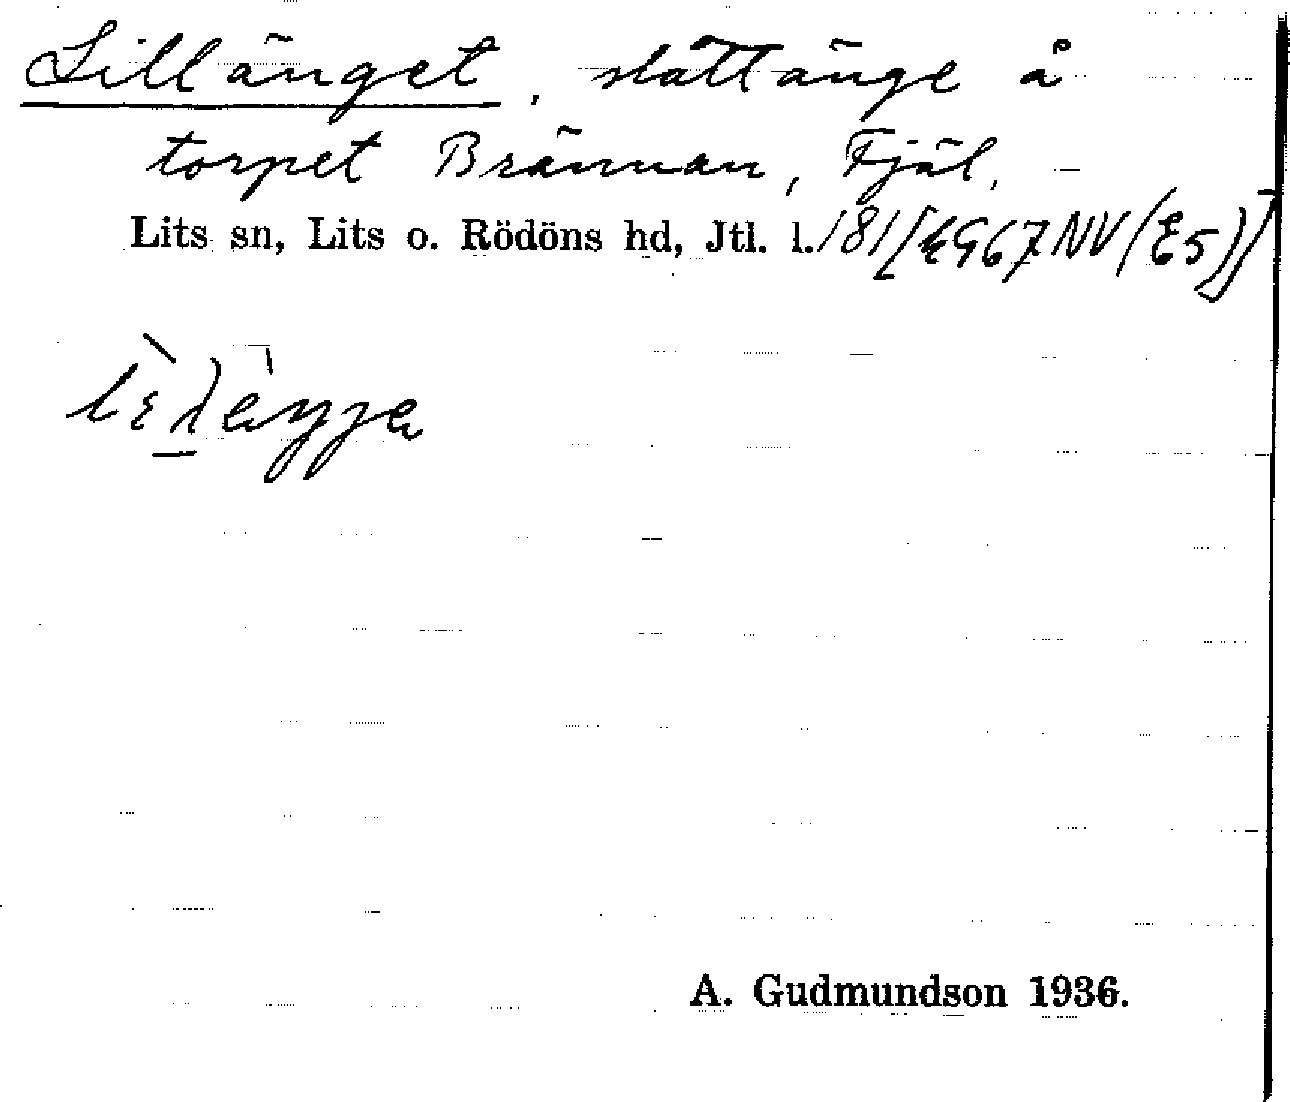 Lillänget, slåttänge å
torpet Brännan, Fjäl,
Lits sn, Lits o. Rödöns hd, Jtl. l. 181
A. Gudmundson 1936.